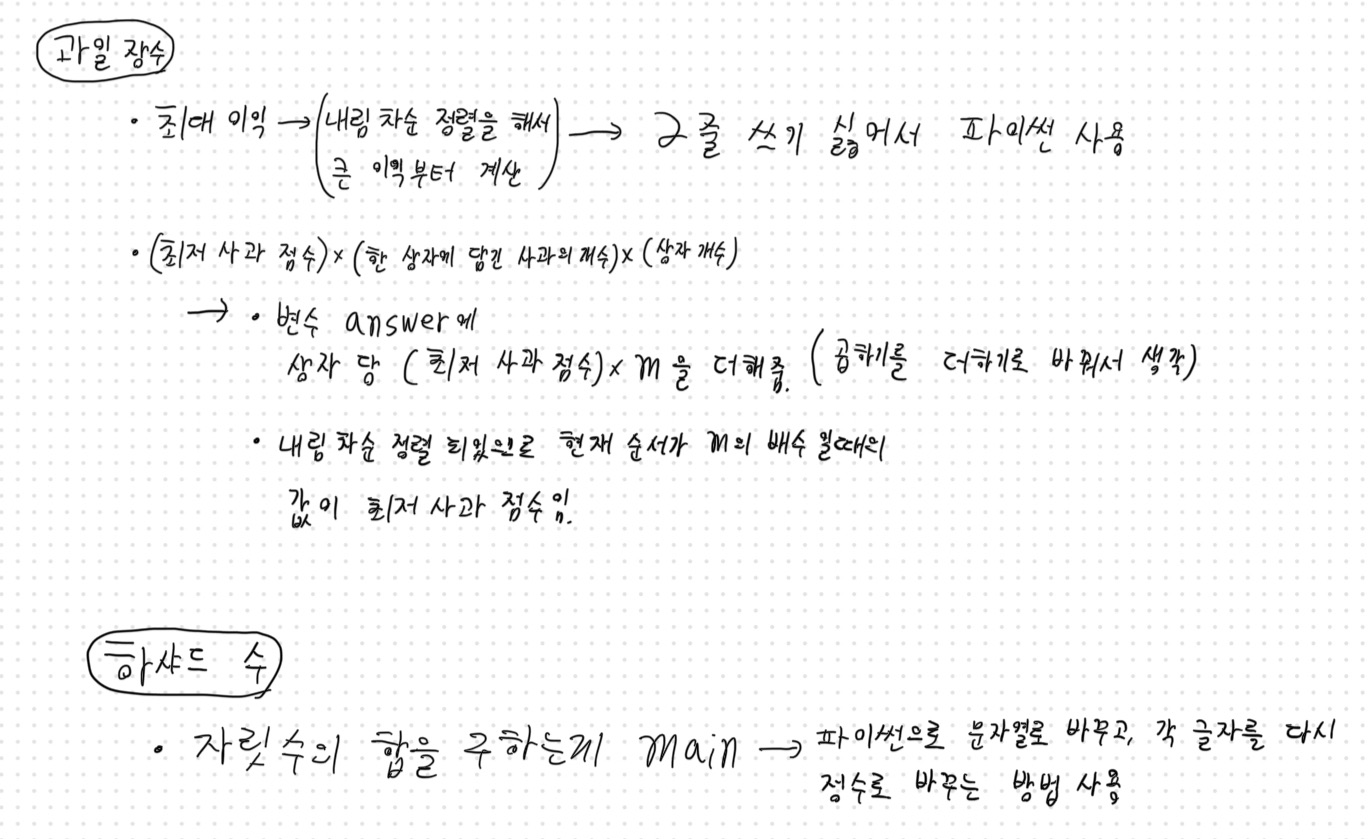 과일 장수
• 최대 이익 → (내림 차순 정렬을 해서 → 2줄 쓰기 싫어서 파이썬 사용
큰 이익부터 계산)
• (최저 사과 점수)×(한 상자에 담긴 사과의 개수)×(상자 개수)
→ • 변수 answer에
상자 당 (최저 사과 점수)× m을 더해줌. (곱하기를 더하기로 바꿔서 생각)
• 내림 차순 정렬 되있으므로 현재 순서가 m의 배수 일때의
값이 최저 사과 점수임.
하샤드 수
• 자릿수의 합을 구하는게 main → 파이썬으로 문자열로 바꾸고, 각 글자를 다시
정수로 바꾸는 방법 사용